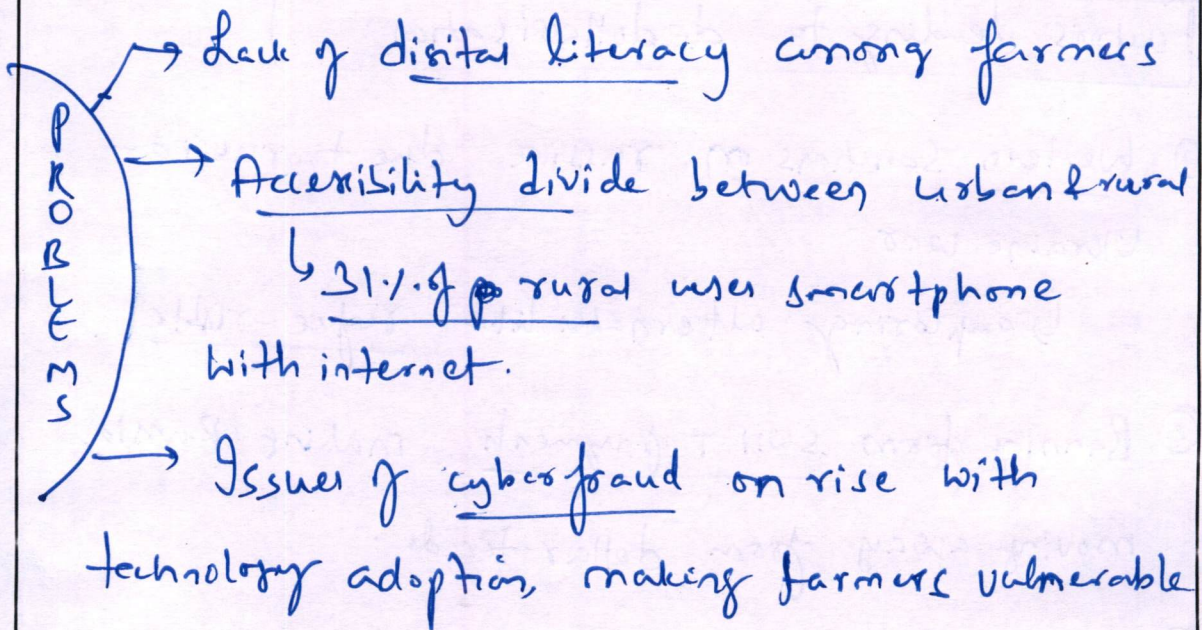 PROBLEMS
→ Lack of digital literacy among farmers
→ Accessibility divide between urban & rural
↳ 31% of rural uses smartphone
with internet.
→ Issues of cyberfraud on rise with
technology adoption, making farmers vulnerable